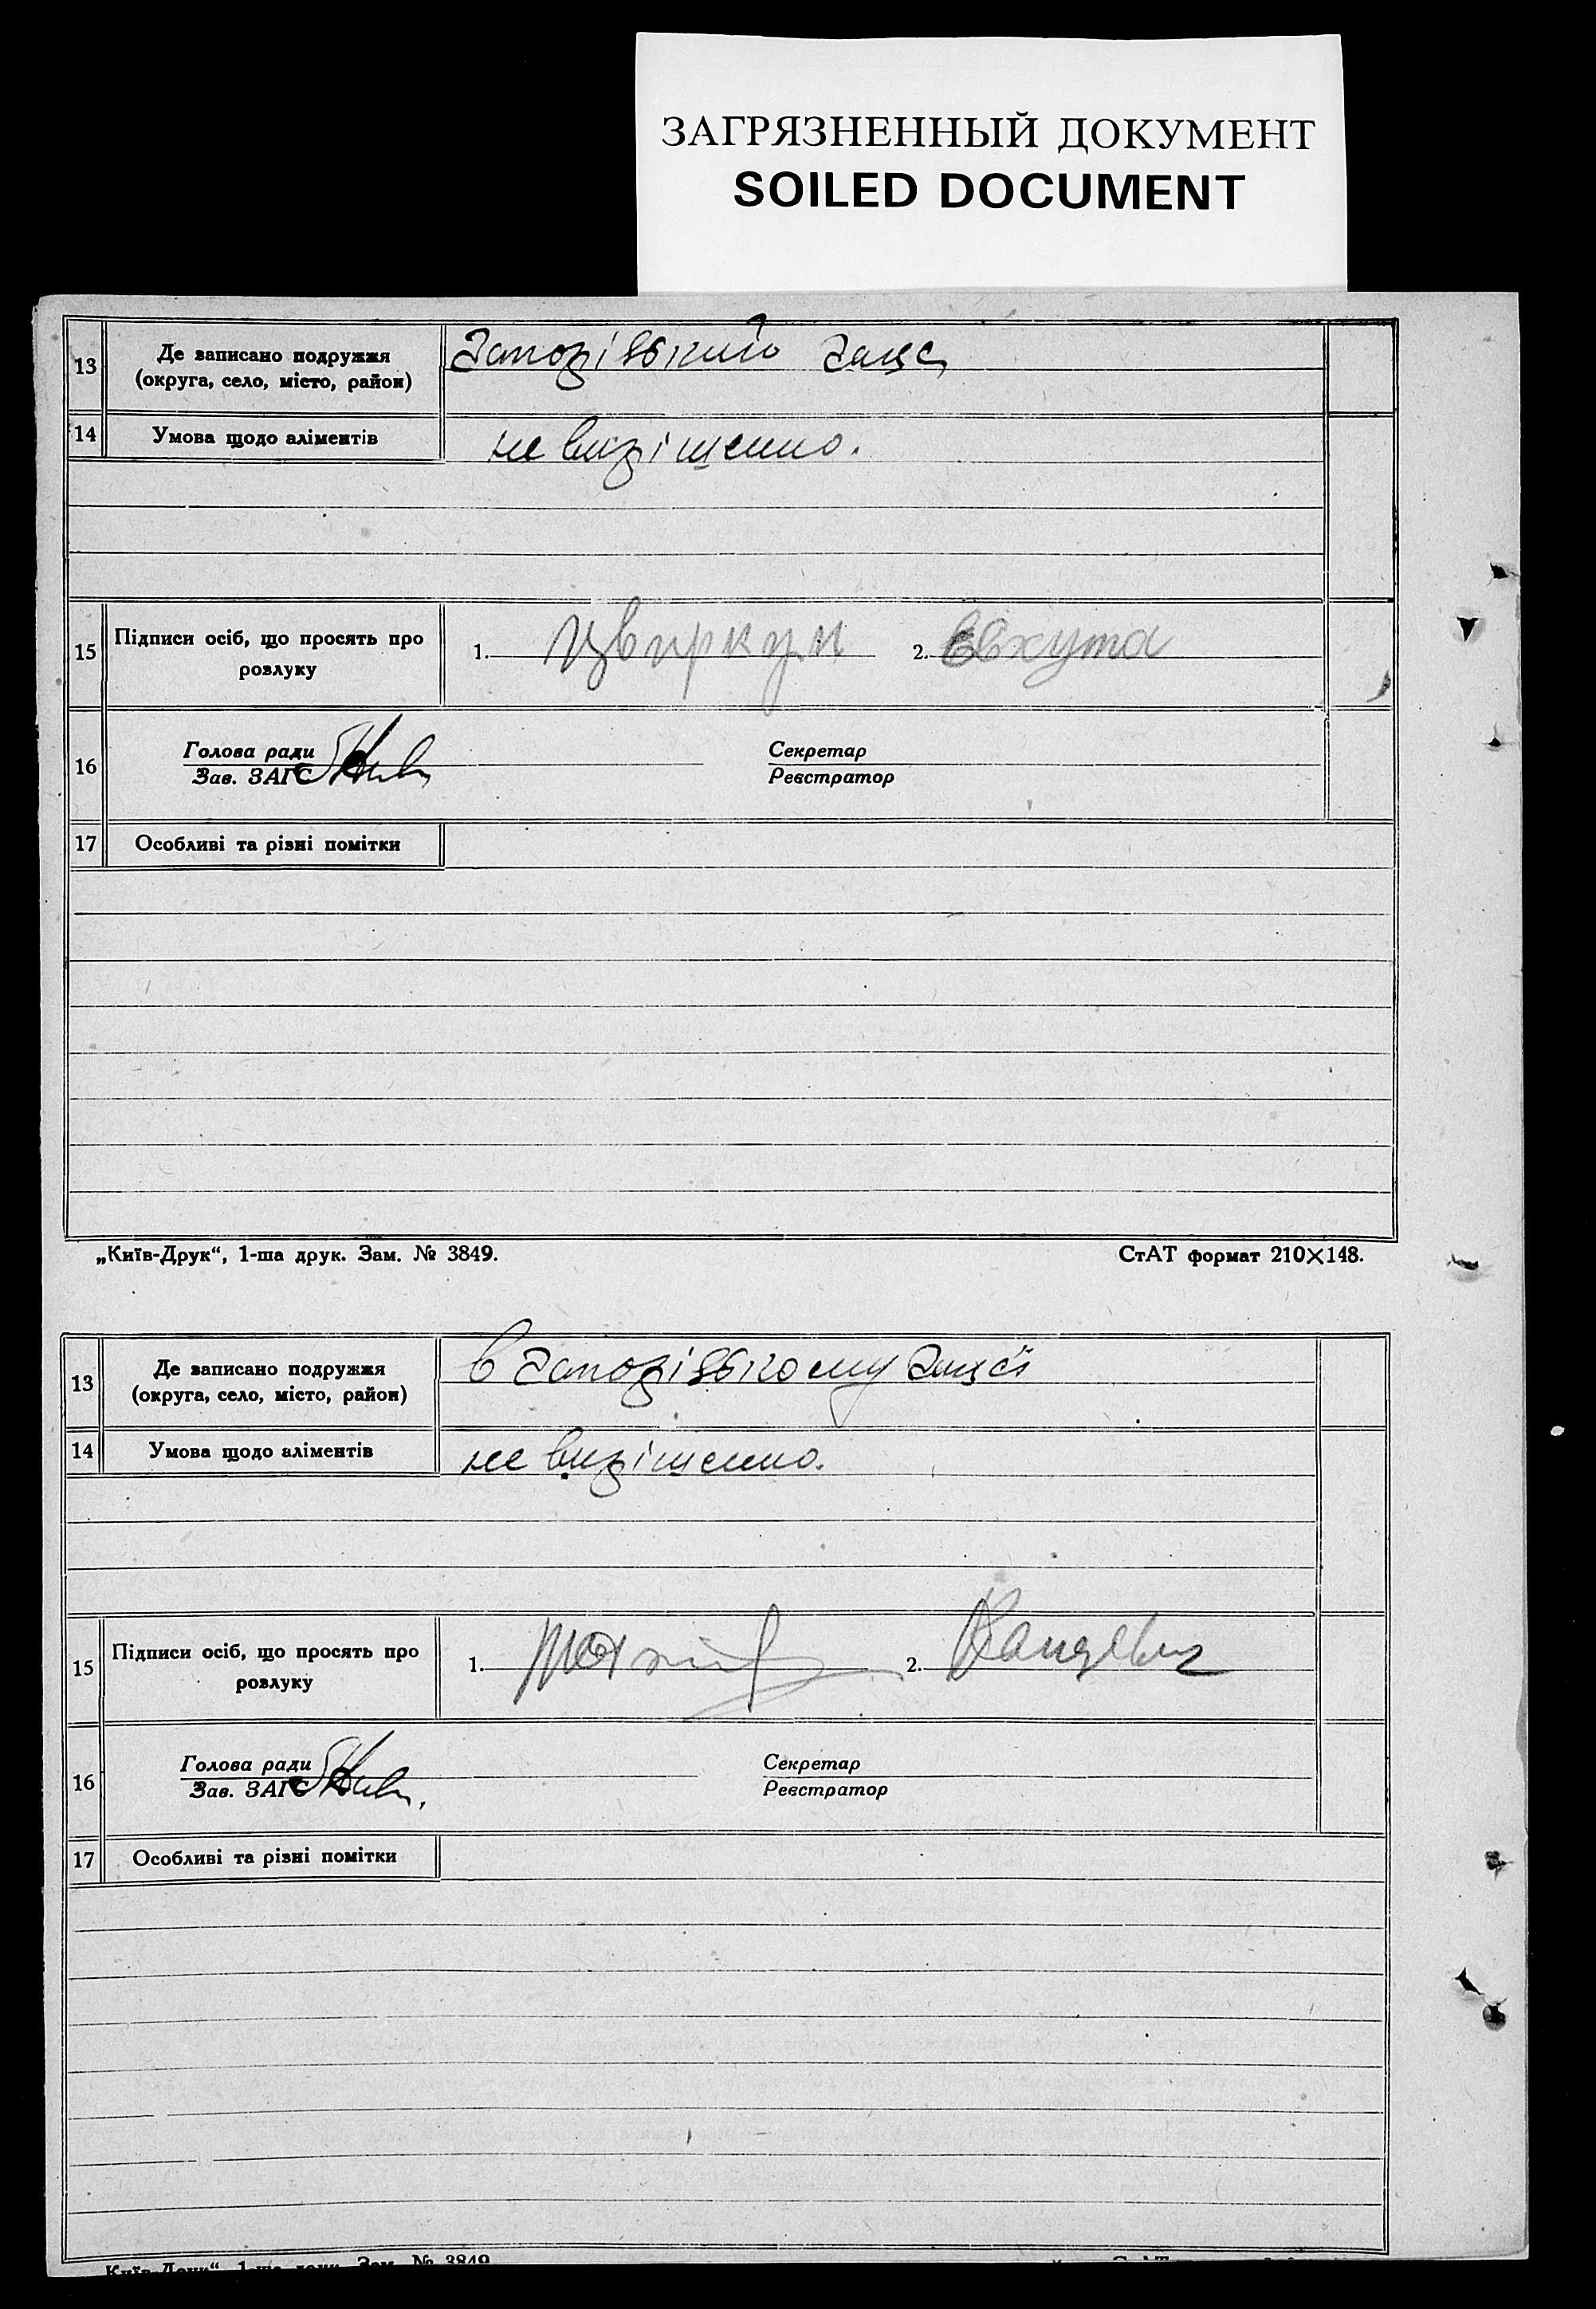 ЗАГРЯЗНЕННЫЙ ДОКУМЕНТ
SOILED DOCUMENT
13
Де записано подружжя
(округа, село, місто, район)
14
Умова щодо аліментів
не вирішенно.
15
Підписи осіб, що просять про
розлуку
1. Цвиркун 2.
16
Голова ради
Зав. ЗАГС
Секретар
Реєстратор
17
Особливі та різні помітки
„Київ-Друк“, 1-ша друк. Зам. № 3849.
СтАТ формат 210×148.
13
Де записано подружжя
(округа, село, місто, район)
в
14
Умова щодо аліментів
не вирішенно.
15
Підписи осіб, що просять про
розлуку
1. 2.
16
Голова ради
Зав. ЗАГС
Секретар
Реєстратор
17
Особливі та різні помітки
Київ-Друк“, 1-ша друк. Зам. № 3849